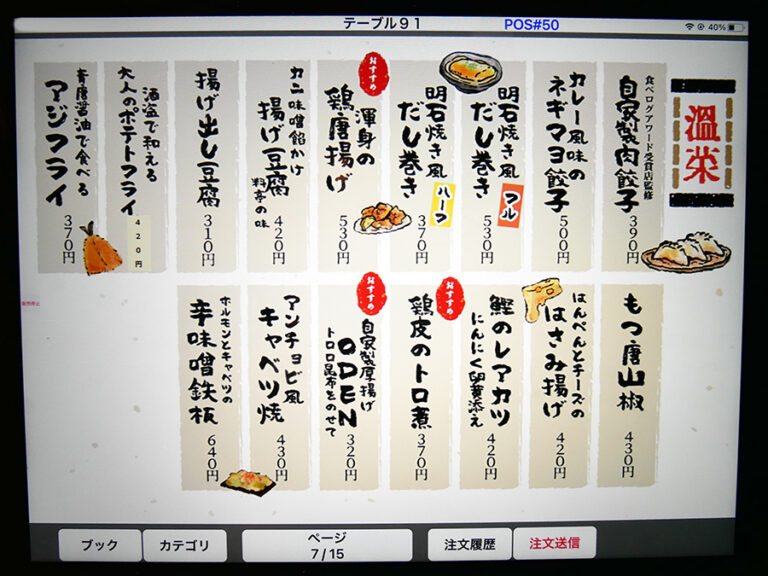 テーブル91
POS#50
40%
温菜
食べログアワード受賞店監修
自家製肉餃子
390円
カレー風味の
ネギマヨ餃子
500円
明石焼き風
だし巻き
フル
530円
明石焼き風
だし巻き
ハーフ
370円
おすすめ
渾身の
鶏唐揚げ
530円
カニ味噌餡かけ
揚げ豆腐
料亭の味
420円
揚げ出し豆腐
310円
酒盗で和える
大人のポテトフライ
420円
青唐醤油で食べる
アジフライ
370円
もつ唐山椒
430円
はんぺんとチーズの
はさみ揚げ
420円
鰹のレアカツ
にんにく卵黄添え
420円
おすすめ
鶏皮のトロ煮
370円
おすすめ
自家製厚揚げ
ODEN
トロロ昆布をのせて
320円
アンチョビ風
キャベツ焼
430円
ホルモンとキャベツの
辛味噌鉄板
640円
ブック
カテゴリ
ページ
7/15
注文履歴
注文送信